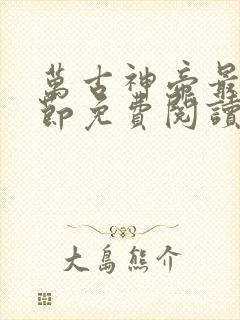 萬古神帝最
節免費閱讀
大島熊介